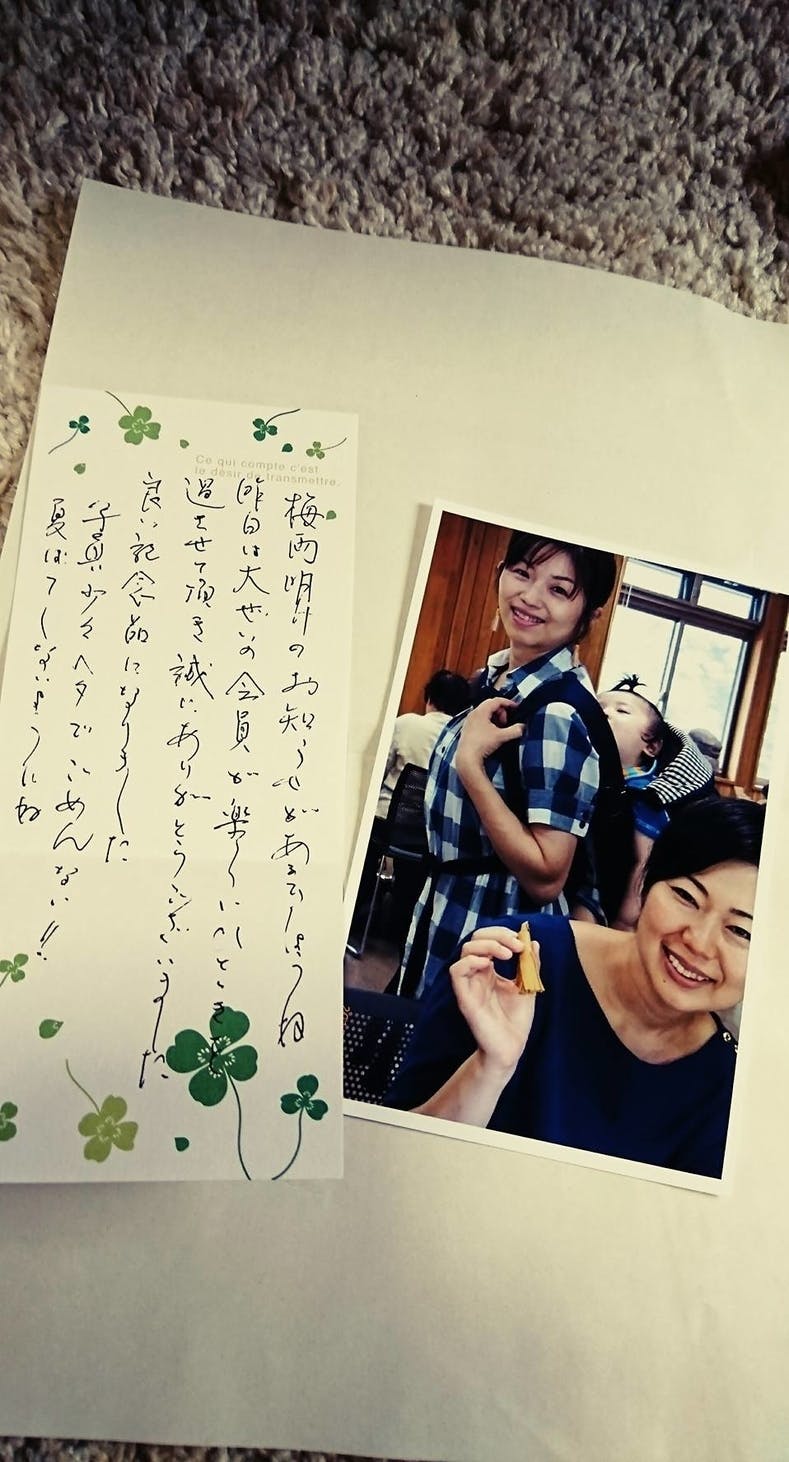 Ce qui compte c'est
le désir de transmettre.
梅雨明けのお知らせがあるでしょうね
昨日は大ぜいの会員が楽しいひとときを
過させて頂き誠にありがとうございました
良い記念品になりました
写真少々ヘタでごめんなさい!!
夏ばてしないようにね